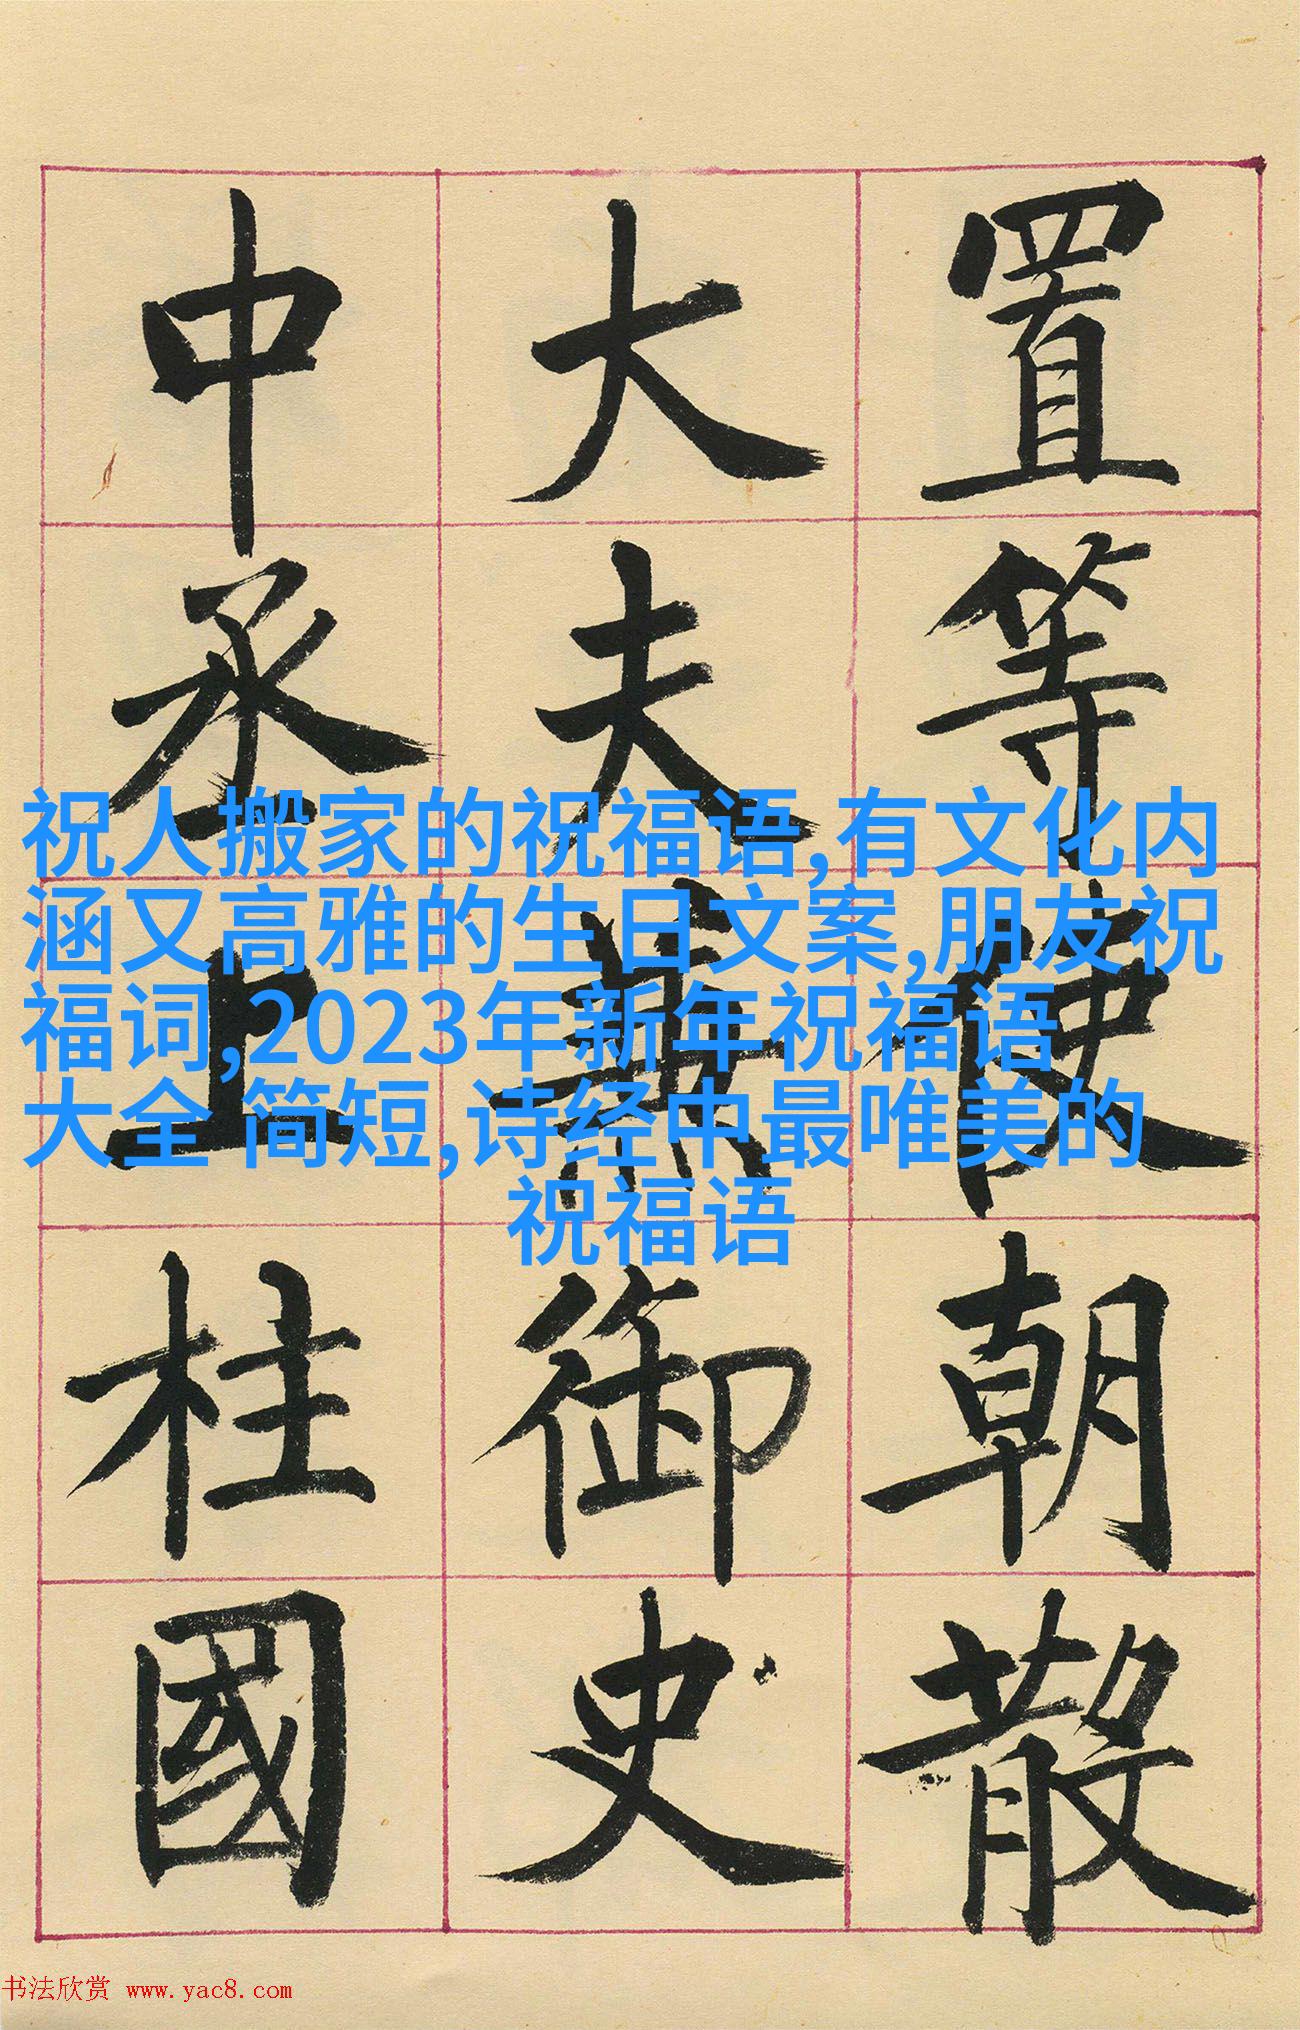 置等使朝散
大夫兼御史
中丞上柱國
祝人搬家的祝福语,有文化内
涵又高雅的生日文案,朋友祝
福词,2023年新年祝福语
大全 简短,诗经中最唯美的
祝福语
书法欣赏 www.yac8.com